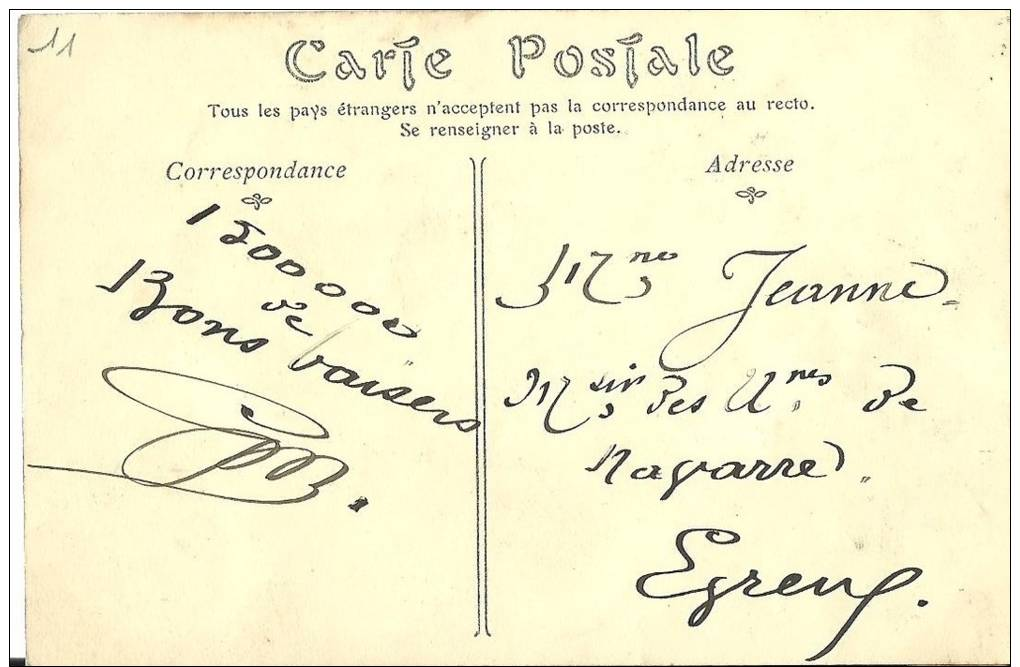 11
Carte Postale
Tous les pays étrangers n'acceptent pas la correspondance au recto.
Se renseigner à la poste.
Correspondance
1500000
de
Bons baisers
Adresse
Mme Jeanne
Msin des Unes de
Navarre